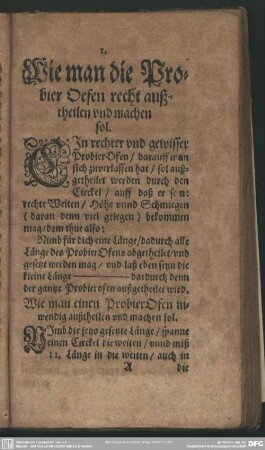 1.
Wie man die Pro-
bier Oefen recht auß-
theilen vnd machen
sol.
EIn rechter vnd gewisser
Probier Ofen / darauff man
sich zuverlassen hat / sol auß-
getheilet werden durch den
Circkel / auff daß er sein
rechte Weiten / Höhe vnnd Schmiegen
( daran denn viel gelegen ) bekommen
mag / dem thue also:
Nimb für dich eine Länge / dadurch alle
Länge des Probier Ofens abgetheilet / vnd
gesetzt werden mag / vnd laß eben seyn die
kleine Länge dardurch denn
der gantze Probierofen außgetheilet wird.
Wie man einen Probier Ofen in-
wendig außtheilen vnd machen sol.
NImb die jetzo gesetzte Länge / spanne
einen Circkel die weiten / vnnd miß
11. Länge in die weiten / auch in
A die